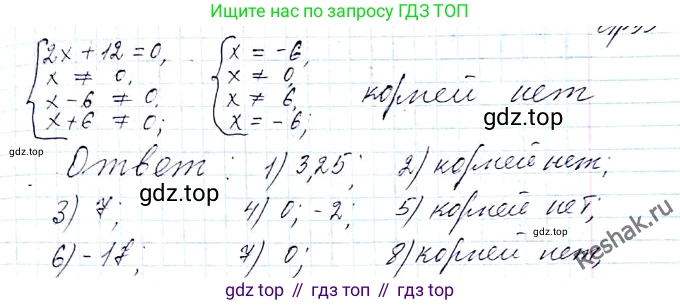 Ищите нас по запросу ГДЗ ТОП
стр 33
2x + 12 = 0, x = -6,
x ≠ 0, x ≠ 0,
x - 6 ≠ 0, x ≠ 6, корней нет
x + 6 ≠ 0; x = -6;
gdz.top gdz.top
Ответ: 1) 3,25; 2) корней нет;
gdz.top
3) 7; 4) 0; -2; 5) корней нет;
gdz.top
6) -17; 7) 0; 8) корней нет;
Reshak.ru
gdz.top // гдз.топ // gdz.top // гдз.топ